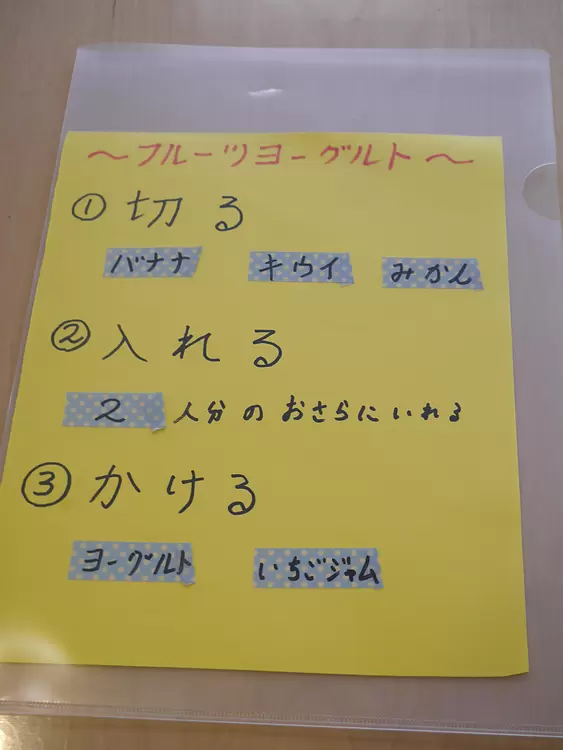 ～フルーツヨーグルト～
① 切る
バナナ キウイ みかん
② 入れる
2 人分のおさらにいれる
③ かける
ヨーグルト いちごジャム